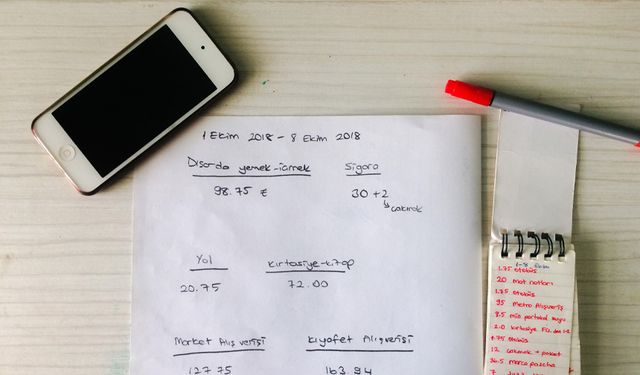 1 Ekim 2018 - 8 Ekim 2018
Dışarda yemek-içmek
Sigara
98.75 ₺
30 + 2
çakmak
Yol
Kırtasiye-kitap
20.75
72.00
Market Alış verişi
Kıyafet Alışverişi
127.75
163.94
1-8 Ekim
1.75 otobüs
20 mat notları
1.75 otobüs
95 Metro Alışveriş
8.5 mio portakal suyu
2.0 kırtasiye
1.75 otobüs
12 çakmak + paket
36.5 Marca pazcha
7